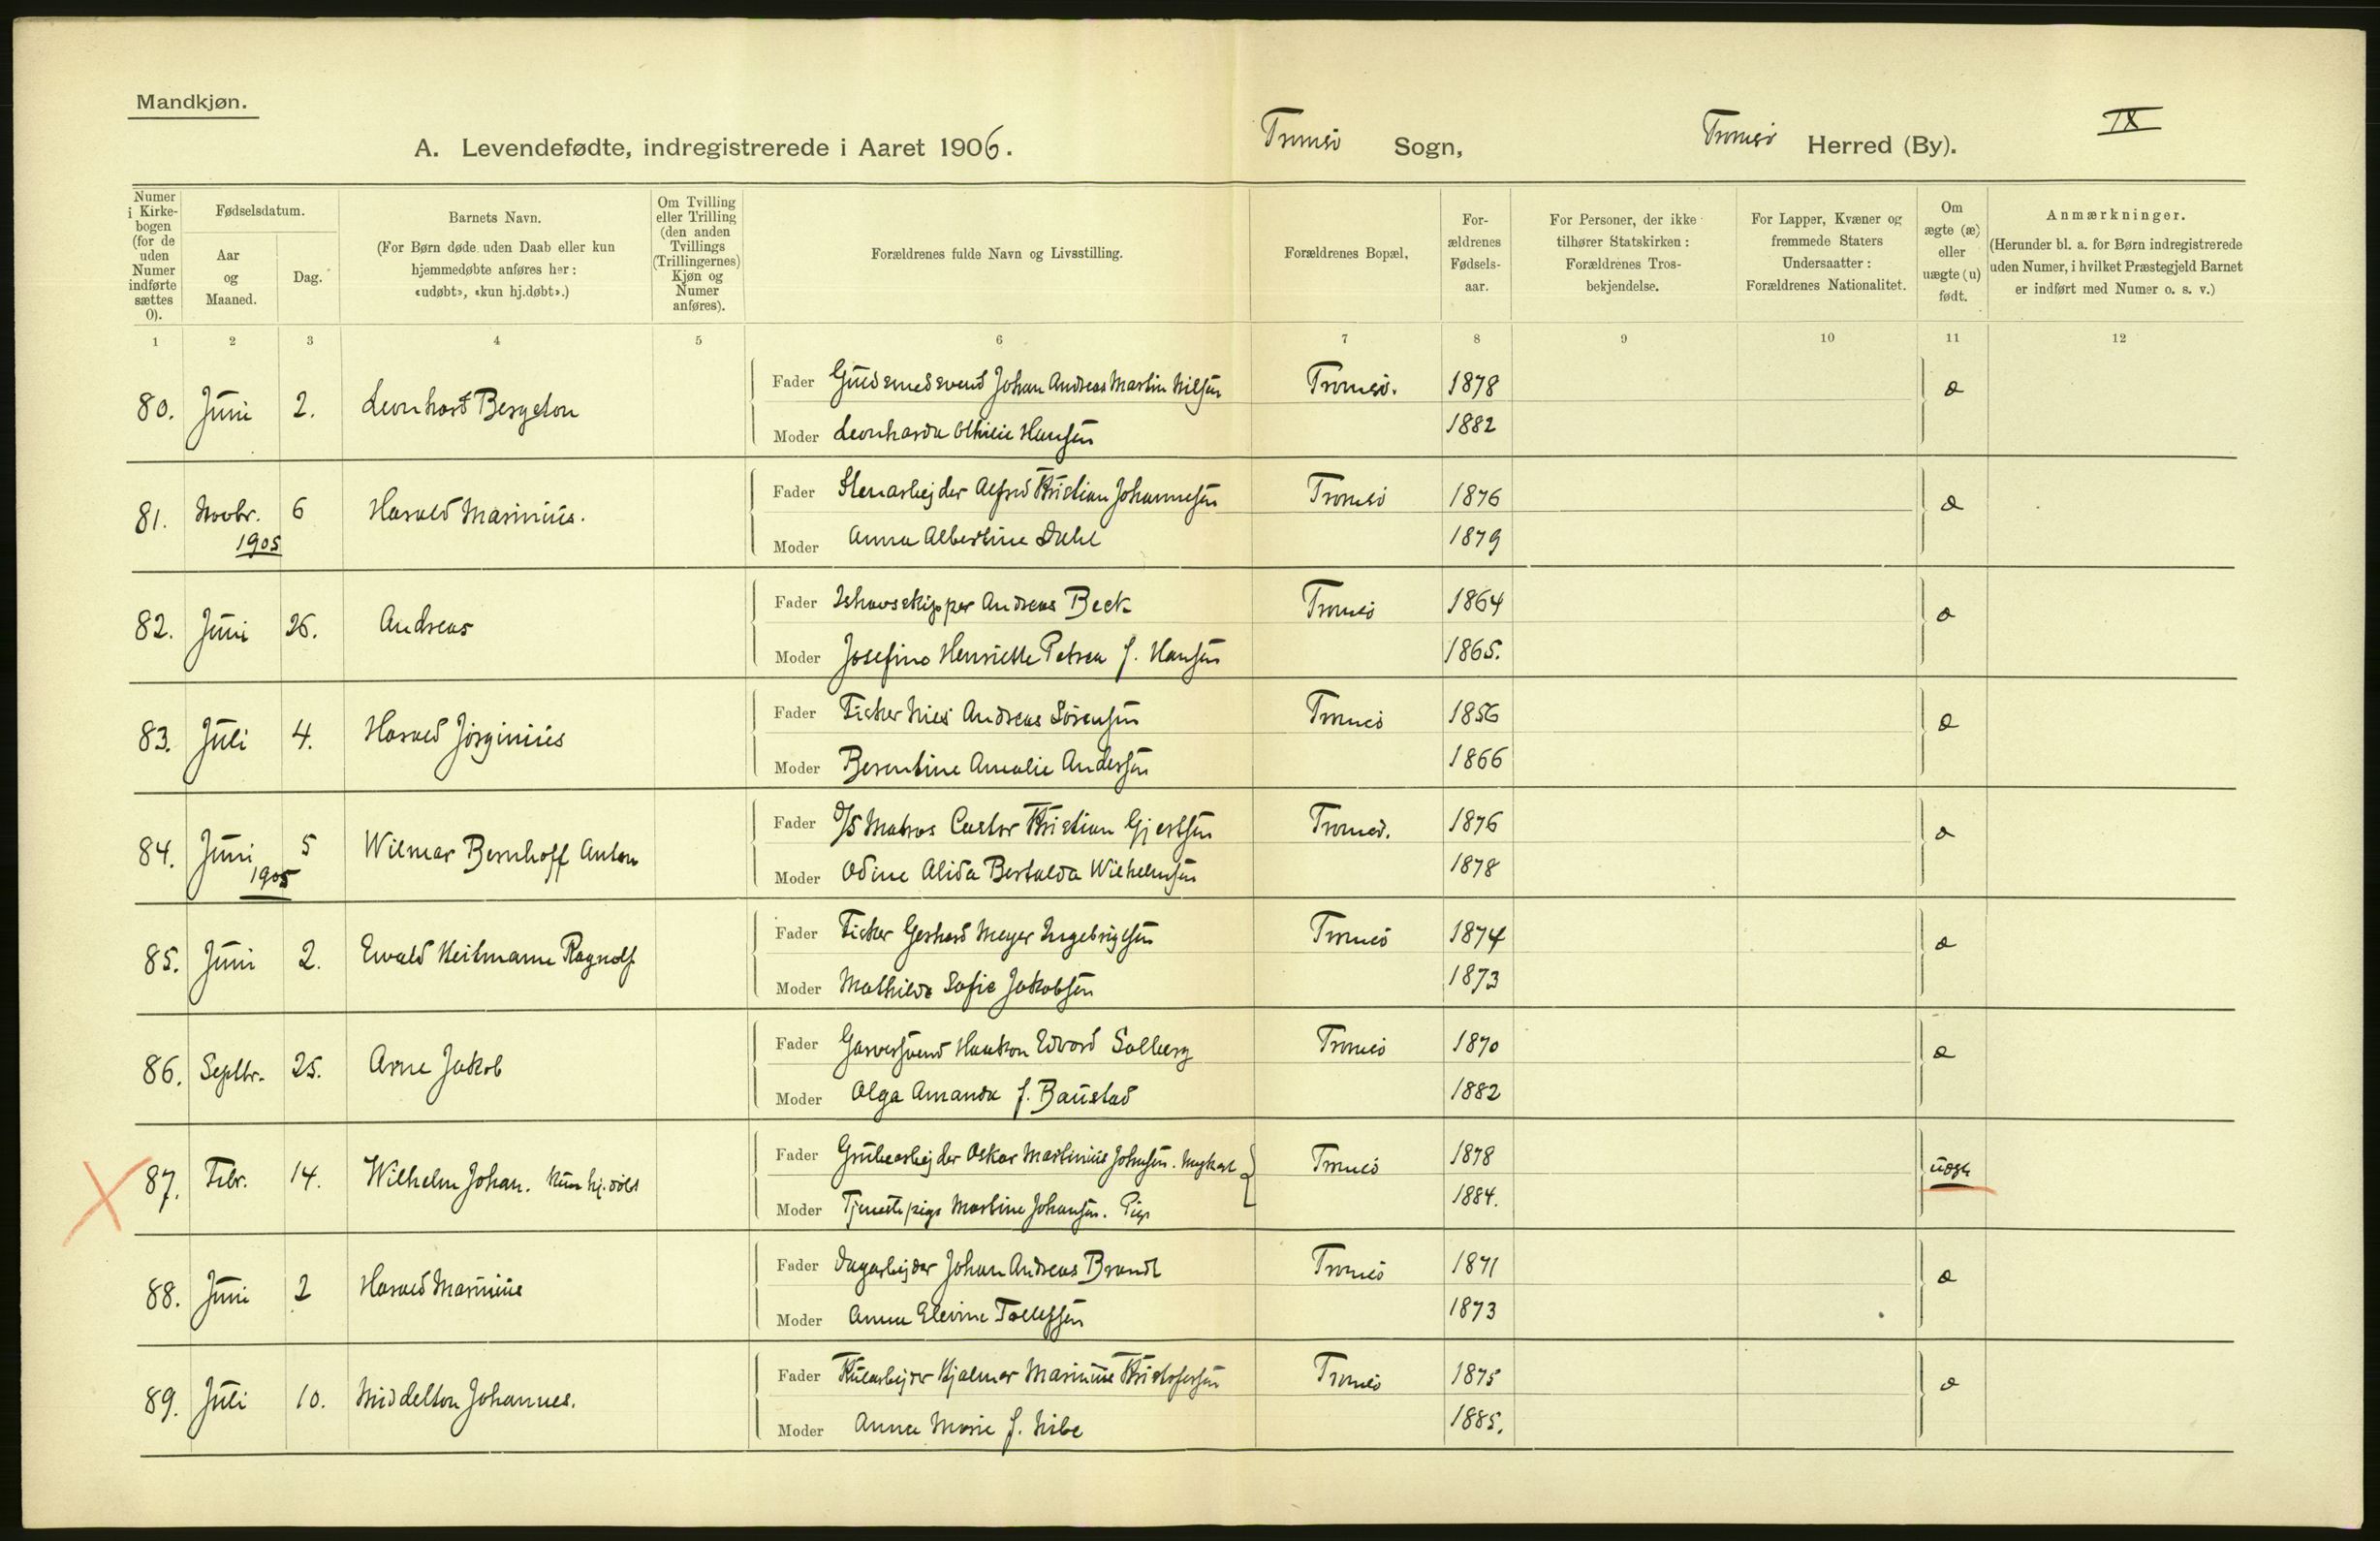 Mandkjøn.
A. Levendefødte, indregistrerede i Aaret 1906. Tromsö Sogn, Tromsö Herred (By). IX
Numer i Kirkebogen (for de uden Numer indførte sættes 0).
Fødselsdatum.
Aar og Maaned.
Dag.
Barnets Navn.
(For Børn døde uden Daab eller kun hjemmedøbte anføres her: «udøbt», «kun hj.døbt».)
Om Tvilling eller Trilling (den anden Tvillings (Trillingernes) Kjøn og Numer anføres).
Forældrenes fulde Navn og Livsstilling.
Forældrenes Bopæl.
Forældrenes Fødselsaar.
For Personer, der ikke tilhører Statskirken: Forældrenes Trosbekjendelse.
For Lapper, Kvæner og fremmede Staters Undersaatter: Forældrenes Nationalitet.
Om ægte (æ) eller uægte (u) født.
Anmærkninger.
(Herunder bl. a. for Børn indregistrerede uden Numer, i hvilket Præstegjeld Barnet er indført med Numer o. s. v.)
1 2 3 4 5 6 7 8 9 10 11 12
80. Juni 2. Leonhard Bergeton
Fader Guldsmedsvend Johan Andreas Martin Nilsen Tromsö. 1878 æ
Moder Leonharda Othilie Hansen 1882
81. Novbr. 1905 6 Harald Marinius.
Fader Stenarbejder Alfred Kristian Johannesen Tromsö 1876 æ
Moder Anna Albertine Dahl 1879
82. Juni 26. Andreas
Fader Ishavsskipper Andreas Beck Tromsö 1864 æ
Moder Josefine Henriette Petrea f. Hansen 1865.
83. Juli 4. Harald Jörginius
Fader Fisker Nils Andreas Sörensen Tromsö 1856 æ
Moder Berentine Amalie Andersen 1866
84. Juni 1905 5 Wilmar Bernhoff Anton
Fader D/S Matros Castor Kristian Gjertsen Tromsö. 1876 æ
Moder Odine Alida Bertalda Wilhelmsen 1878
85. Juni 2. Ewald Heitmann Ragnolf
Fader Fisker Gerhard Meyer Ingebrigtsen Tromsö 1874 æ
Moder Mathilde Sofie Jakobsen 1873
86. Septbr. 25. Arne Jakob
Fader Garversvend Haakon Edvard Solberg Tromsö 1870 æ
Moder Olga Amanda f. Baustad 1882
87. Febr. 14. Wilhelm Johan. Kun hj. döbt
Fader Grubearbejder Oskar Martinius Johnsen. Ungkarl Tromsö 1878 uægte
Moder Tjenestepige Martine Johansen. Pige 1884.
88. Juni 2 Harald Marinius
Fader Dagarbejder Johan Andreas Brandt Tromsö 1871 æ
Moder Anna Elevine Tollefsen 1873
89. Juli 10. Middelton Johannes.
Fader Kularbejder Hjalmar Marinius Kristofersen Tromsö 1875 æ
Moder Anna Marie f. Nibe 1885.